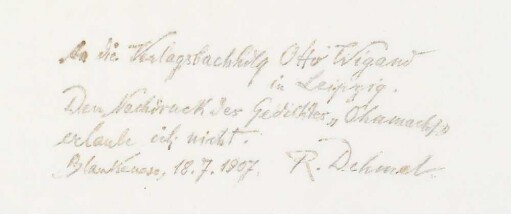 An die Verlagsbuchhdlg Otto Wigand
in Leipzig.
Den Nachdruck des Gedichtes „Ohnmacht“
erlaube ich nicht.
Blankenese, 18.7.1907. R. Dehmel.